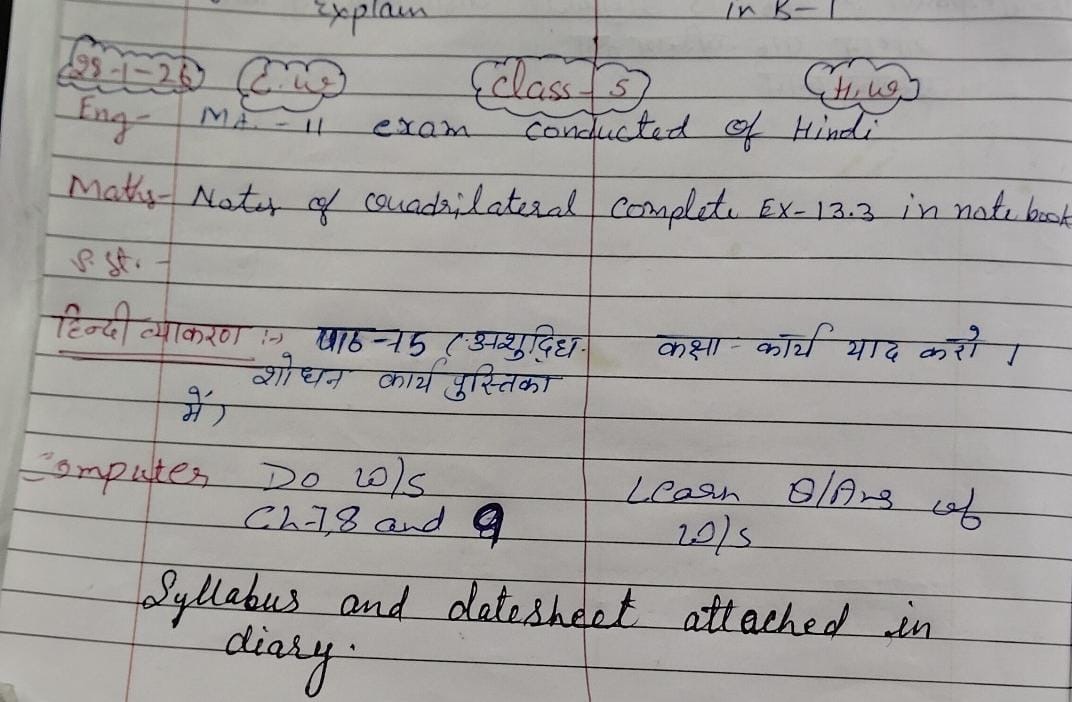 Explain in B-1
28-1-26 C.W Class-5 H.W
Eng- MA-II exam conducted of Hindi
Maths- Notes of Quadrilateral Complete EX-13.3 in note book
S.St. -
हिन्दी व्याकरण :- पाठ-15 (अशुद्धि कक्षा-कार्य याद करो।
शोधन कार्य पुस्तिका
में)
Computer Do W/S Learn Q/Ans of
Ch-7,8 and 9 W/S
Syllabus and datesheet attached in
diary.